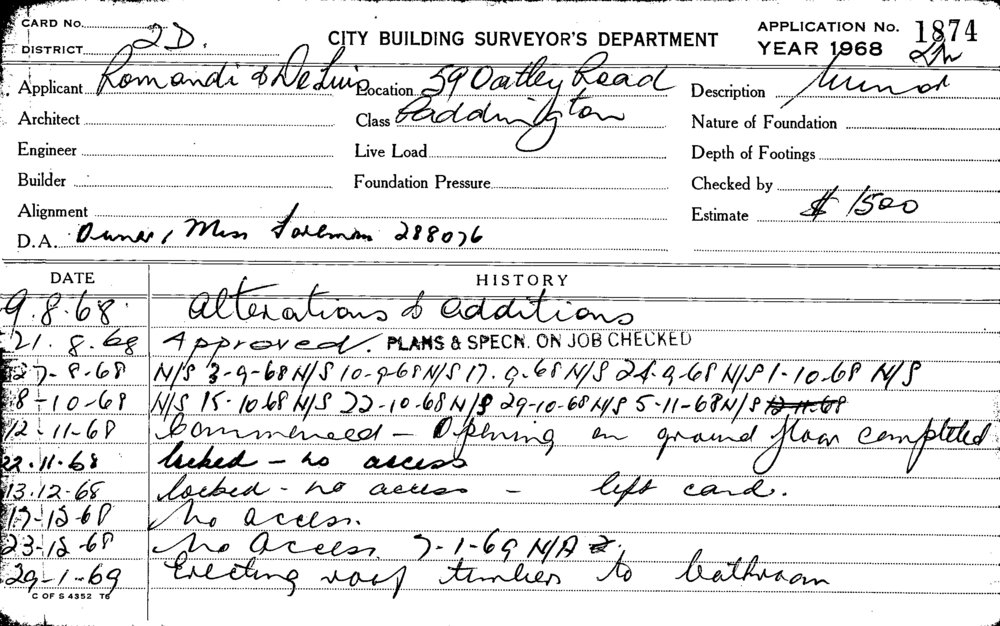 CARD No.
DISTRICT 2D.
CITY BUILDING SURVEYOR'S DEPARTMENT
APPLICATION No. 1874
YEAR 1968
Applicant Romandi & De Luis
Location 59 Oatley Road
Description Minor
Architect
Class Paddington
Nature of Foundation
Engineer
Live Load
Depth of Footings
Builder
Foundation Pressure
Checked by
Alignment
Estimate $ 1500
D.A. Owner, Miss Foreman 288076
DATE HISTORY
9.8.68. Alterations & additions
21.8.68 Approved. PLANS & SPECN. ON JOB CHECKED
27-8-68 N/S 3-9-68 N/S 10-9-68 N/S 17.9.68 N/S 24.9.68 N/S 1-10-68 N/S
8-10-68 N/S 15-10-68 N/S 22-10-68 N/S 29-10-68 N/S 5-11-68 N/S 12-11-68
12-11-68 Commenced - Opening on ground floor completed
22.11.68 locked - no access
13.12.68 locked - no access - left card.
17-12-68 No access.
23-12-68 No Access. 7-1-69 N/A
29-1-69 Erecting roof timbers to bathroom
C OF S 4352 T6